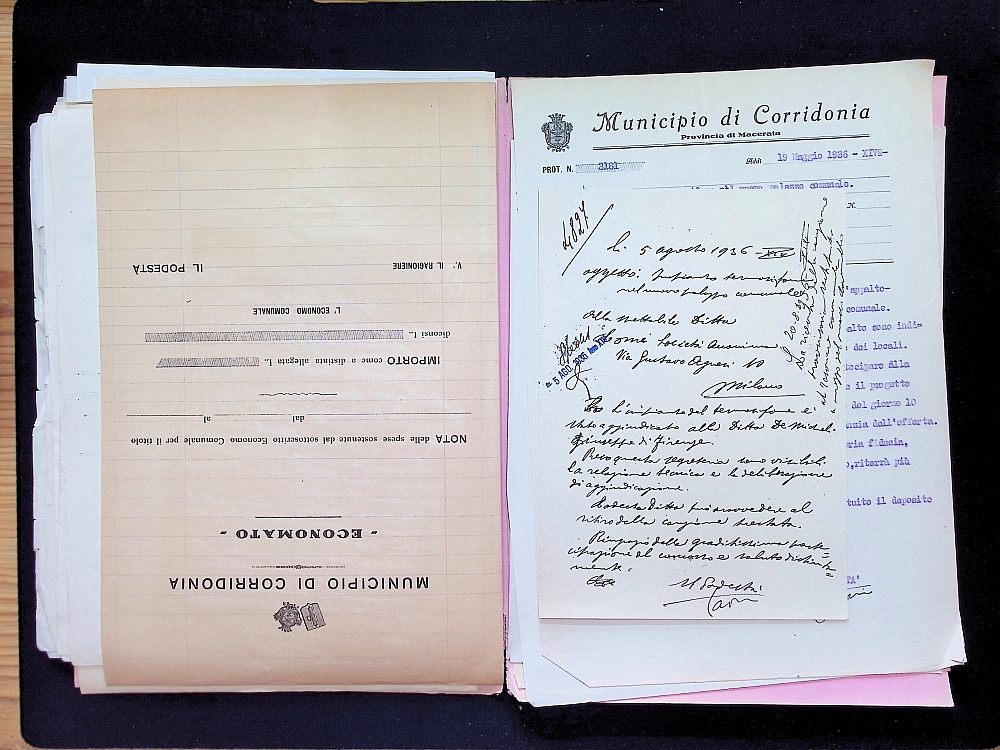 MUNICIPIO DI CORRIDONIA
- ECONOMATO -
NOTA delle spese sostenute dal sottoscritto Economo Comunale per il titolo
dal al
IMPORTO come a distinta allegata L.
diconsi L.
L' ECONOMO COMUNALE
V.° IL RAGIONIERE IL PODESTÀ
Municipio di Corridonia
Provincia di Macerata
PROT. N. 3161 Addì 19 Maggio 1936 - XIV°-
il nuovo palazzo comunale.
N.
4827
li 5 agosto 1936 - XIV
oggetto: Impianto termosifone
nel nuovo palazzo comunale
Alla Spettabile Ditta
Società Anonima
Via Gustavo 10
Milano
5 AGO. 1936 Anno XIV
L'impianto del termosifone è
stato aggiudicato alla Ditta De Micheli
Giuseppe di Firenze.
Presso questa segreteria sono visibili
la relazione tecnica e la deliberazione
di aggiudicazione.
Codesta Ditta può provvedere al
ritiro della cauzione prestata.
Ringrazio della graditissima parte-
cipazione al concorso e saluto distinta-
mente.
Il Podestà
20-8-36
la ricevuta della cauzione
'appalto-
comunale.
alto sono indi-
dei locali.
tecipare alla
e il progetto
del giorno 10
nzia dell'offerta.
ria fiducia,
,riterrà più
tuito il deposito
TA'